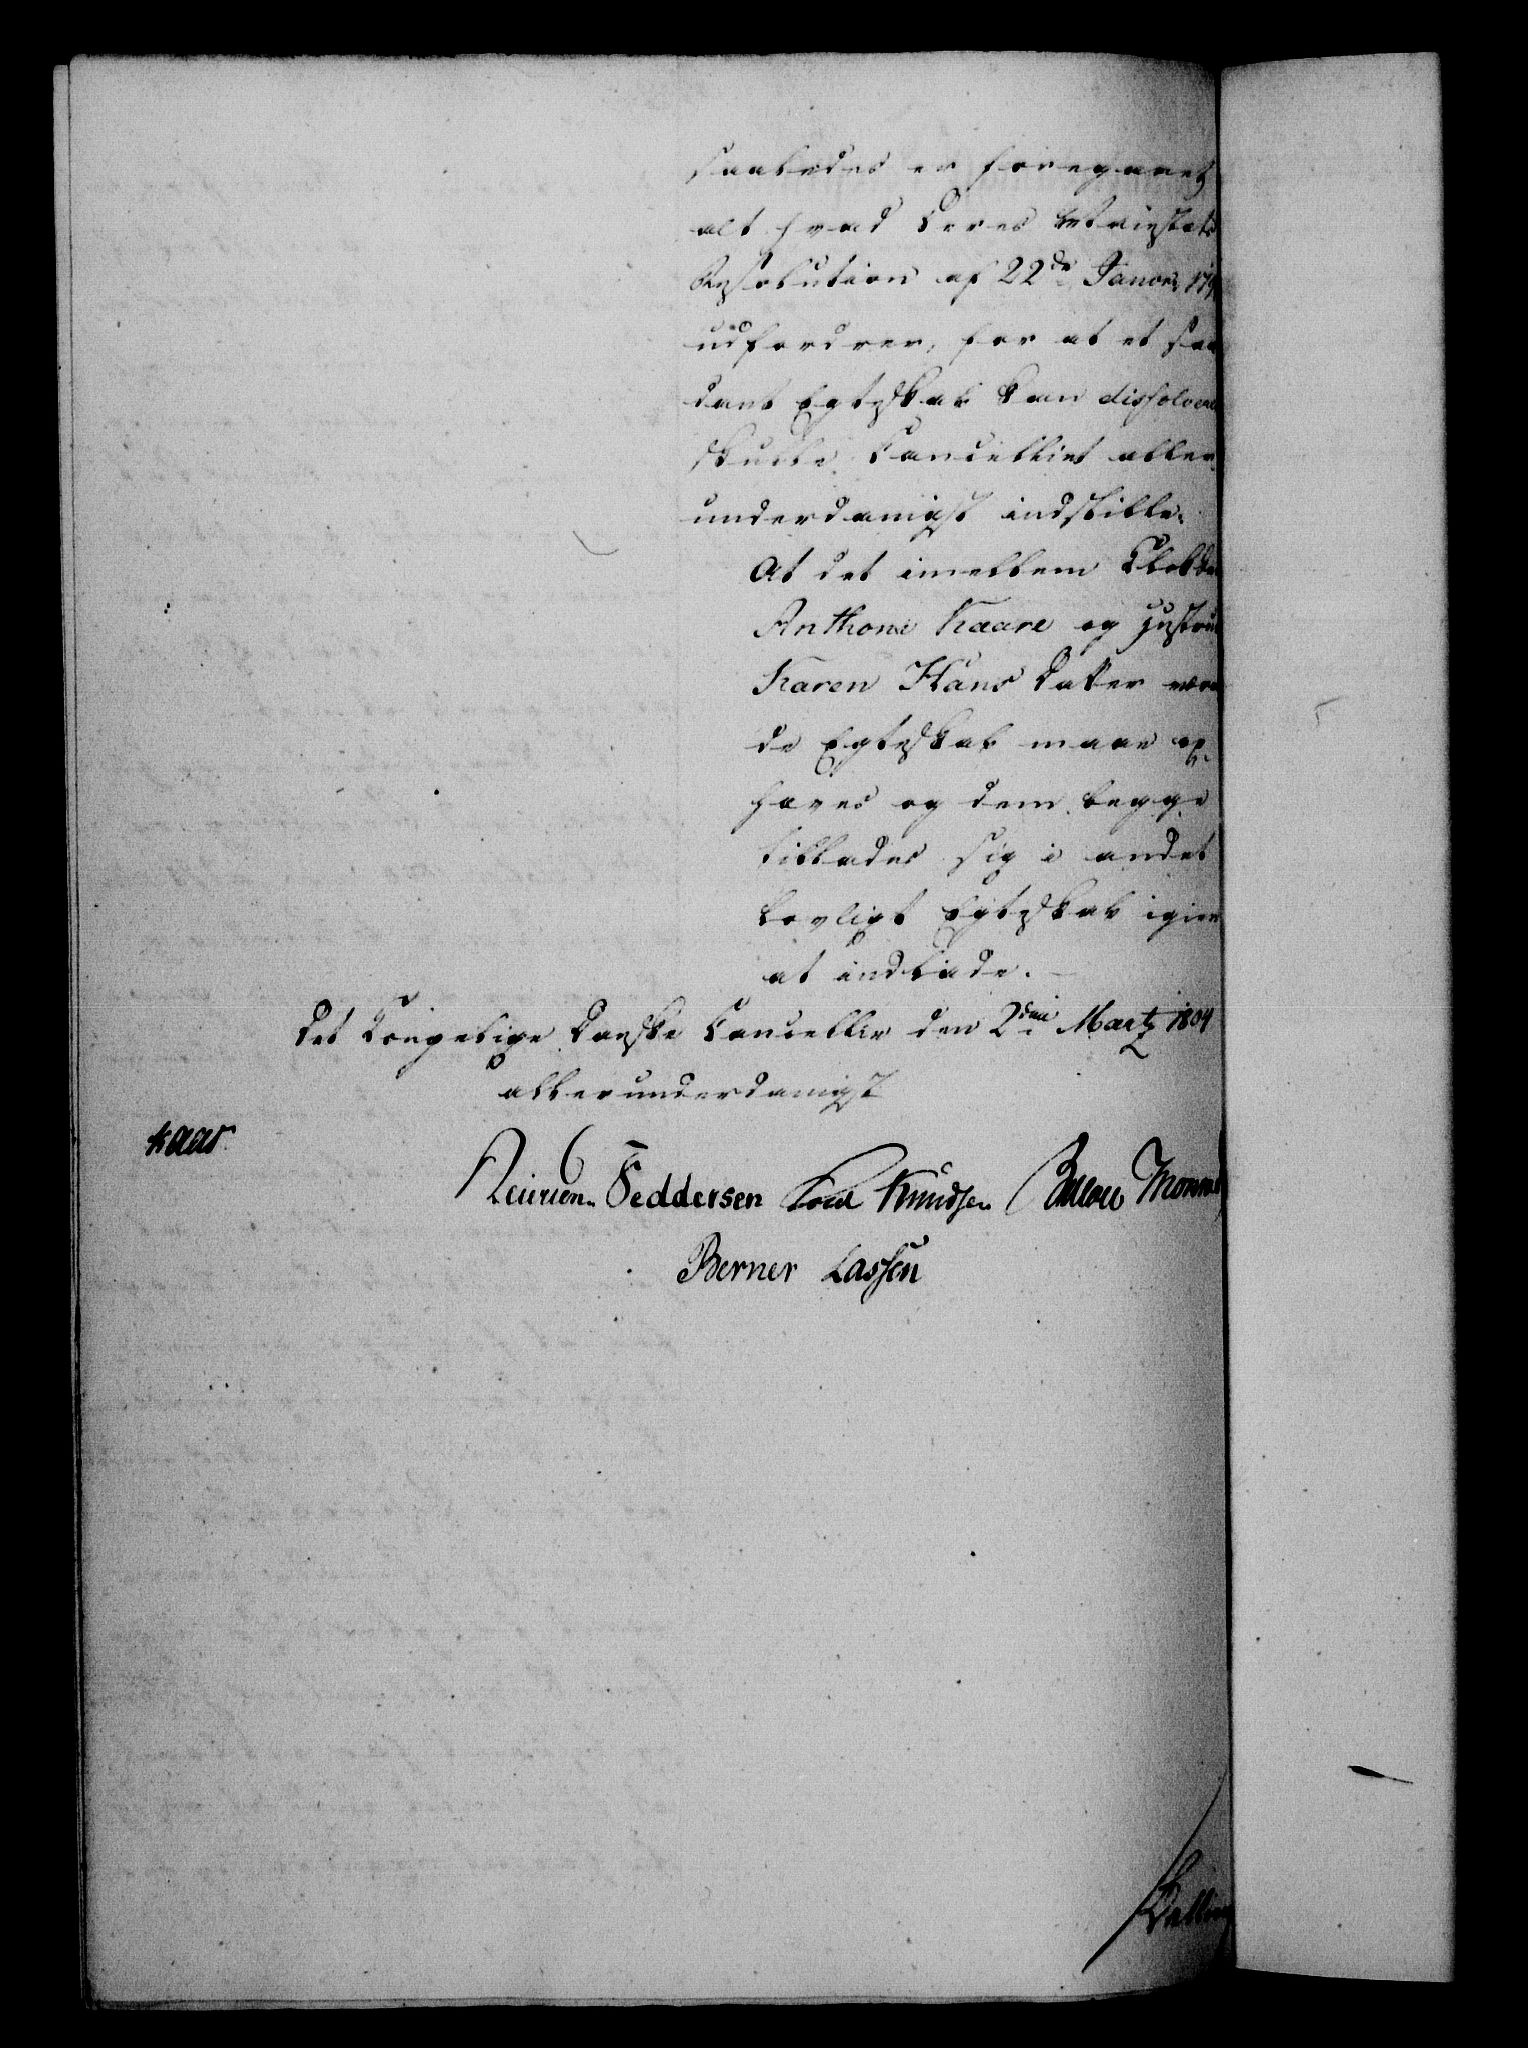 saaledes er foregaaet
alt hvad Deres Majestæts
Resolution af 22de Januar 179
udfordrer, for at et saa
dant Egteskab kan dissolveres
skulle Cancelliet aller
underdanigst indstille:
At det imellem
Anthoni Kaare og Hustrue
Karen Hans Datter væren
de Egteskab maae op
hæves og dem begge
tillades sig i andet
lovligt Egteskab igien
at indlade.
Det Kongelige Danske Cancellie den 2den Martz 1804
allerunderdanigst
Kaas
Feddersen Knudsen Bülow
Berner Lassen